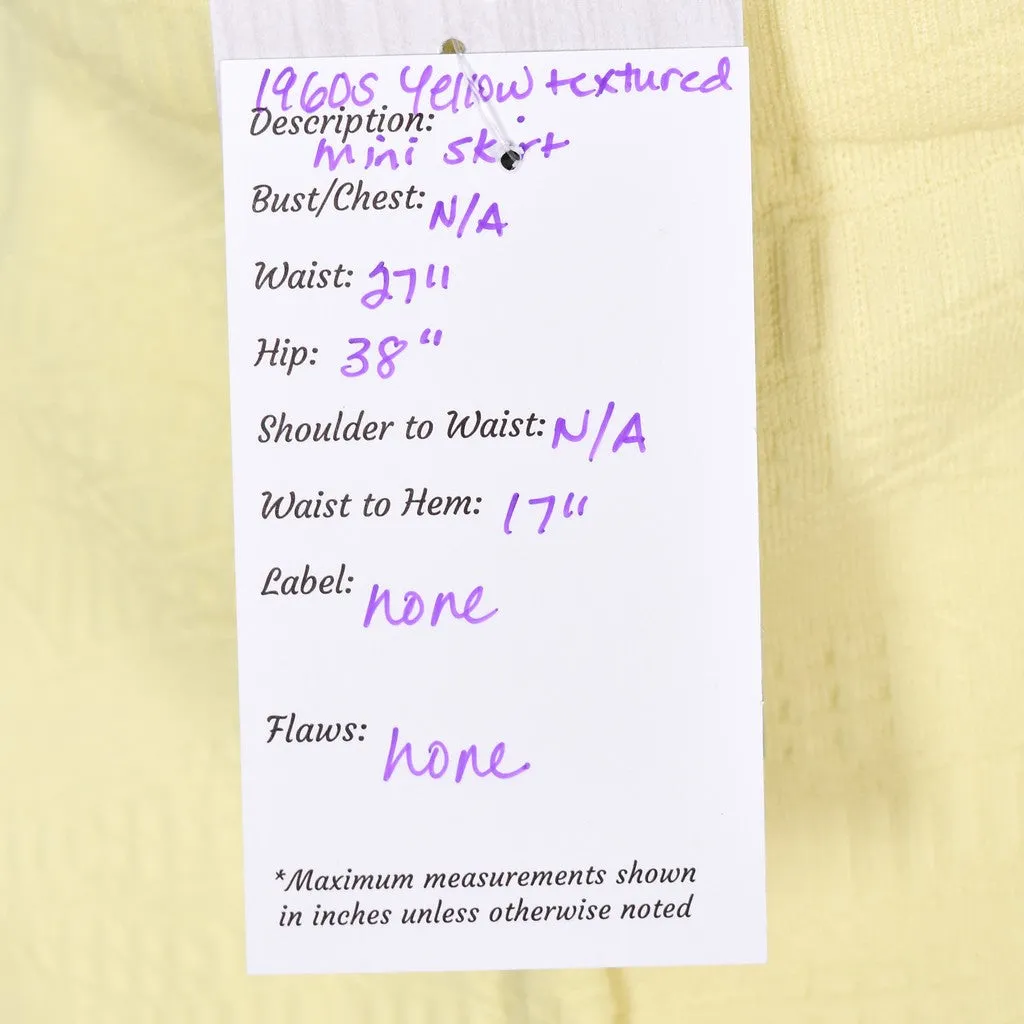 1960s Yellow textured
Description:
mini skirt
Bust/Chest: N/A
Waist: 27"
Hip: 38"
Shoulder to Waist: N/A
Waist to Hem: 17"
Label: none
Flaws: none
*Maximum measurements shown
in inches unless otherwise noted